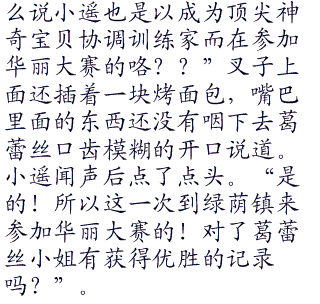 么说小遥也是以成为顶尖神
奇宝贝协调训练家而在参加
华丽大赛的咯？？”叉子上
面还插着一块烤面包，嘴巴
里面的东西还没有咽下去葛
蕾丝口齿模糊的开口说道。
小遥闻声后点了点头。“是
的！所以这一次到绿荫镇来
参加华丽大赛的！对了葛蕾
丝小姐有获得优胜的记录
吗？”。